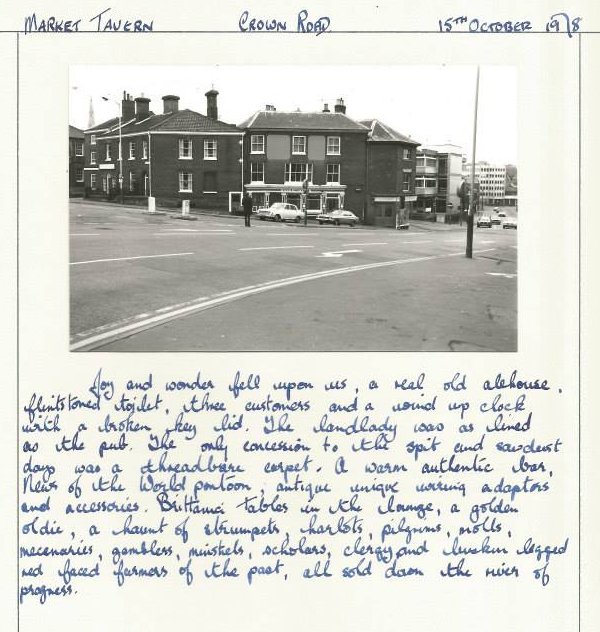 MARKET TAVERN CROWN ROAD 15TH OCTOBER 1978
Joy and wonder fell upon us, a real old alehouse,
flintstoned toilet, three customers and a wind up clock
with a broken key lid. The landlady was as lined
as the pub. The only concession to the spit and sawdust
days was a threadbare carpet. A warm authentic bar,
News of the World pontoon, antique unique wiring adaptors
and accessories. Brittania tables in the lounge, a golden
oldie, a haunt of strumpets, harlots, pilgrims, molls,
mecenaries, gamblers, minstrels, scholars, clergy and buskin legged
red faced farmers of the past, all sold down the river of
progress.